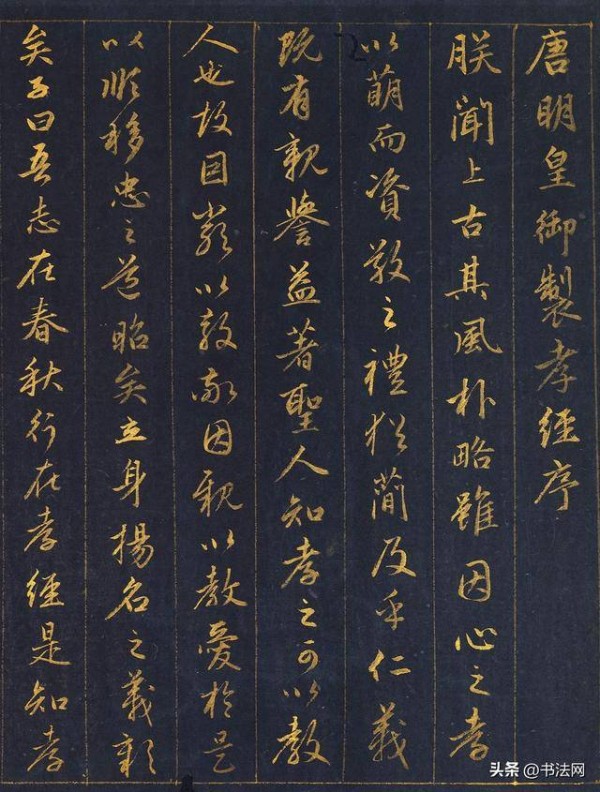 唐明皇御製孝經序
朕聞上古其風朴略雖因心之孝
以萌而資敬之禮猶簡及乎仁義
既有親譽益著聖人知孝之可以教
人也故因嚴以教敬因親以教愛於是
以順移忠之道昭矣立身揚名之義彰
矣子曰吾志在春秋行在孝經是知孝
头条 @书法网